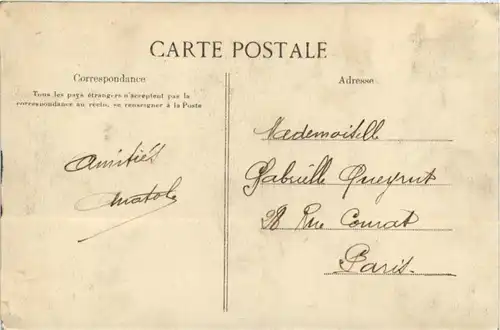 CARTE POSTALE
Correspondance
Tous les pays étrangers n'acceptent pas la
correspondance au recto, se renseigner à la Poste
Adresse
Amitiés
Anatole
Mademoiselle
Gabrielle
28 Rue
Paris.